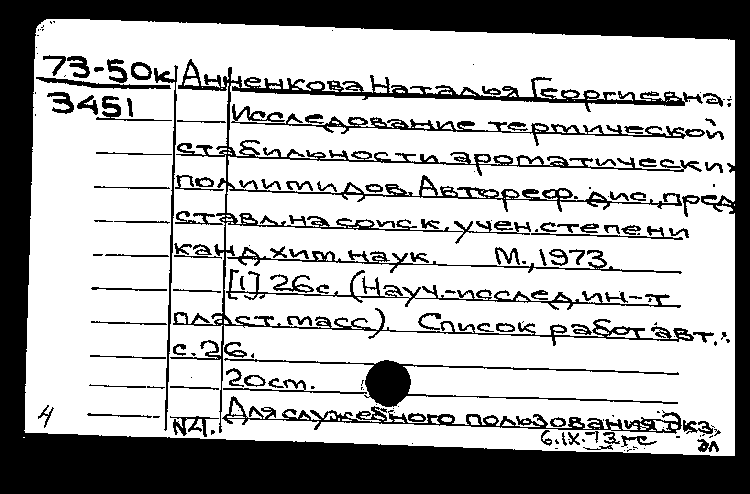 73-50к Анненкова, Наталья Георгиевна.
3451 Исследование термической
стабильности ароматических
полиимидов. Автореф. дис., пред
ставл. на соиск. учен. степени
канд. хим. наук. М., 1973.
[1], 26с. (Науч.-исслед. ин-т
пласт. масс). Список работ авт.:
с. 26.
20см.
Для служебного пользования. Экз.
№4.
6.IX.73 гс
4